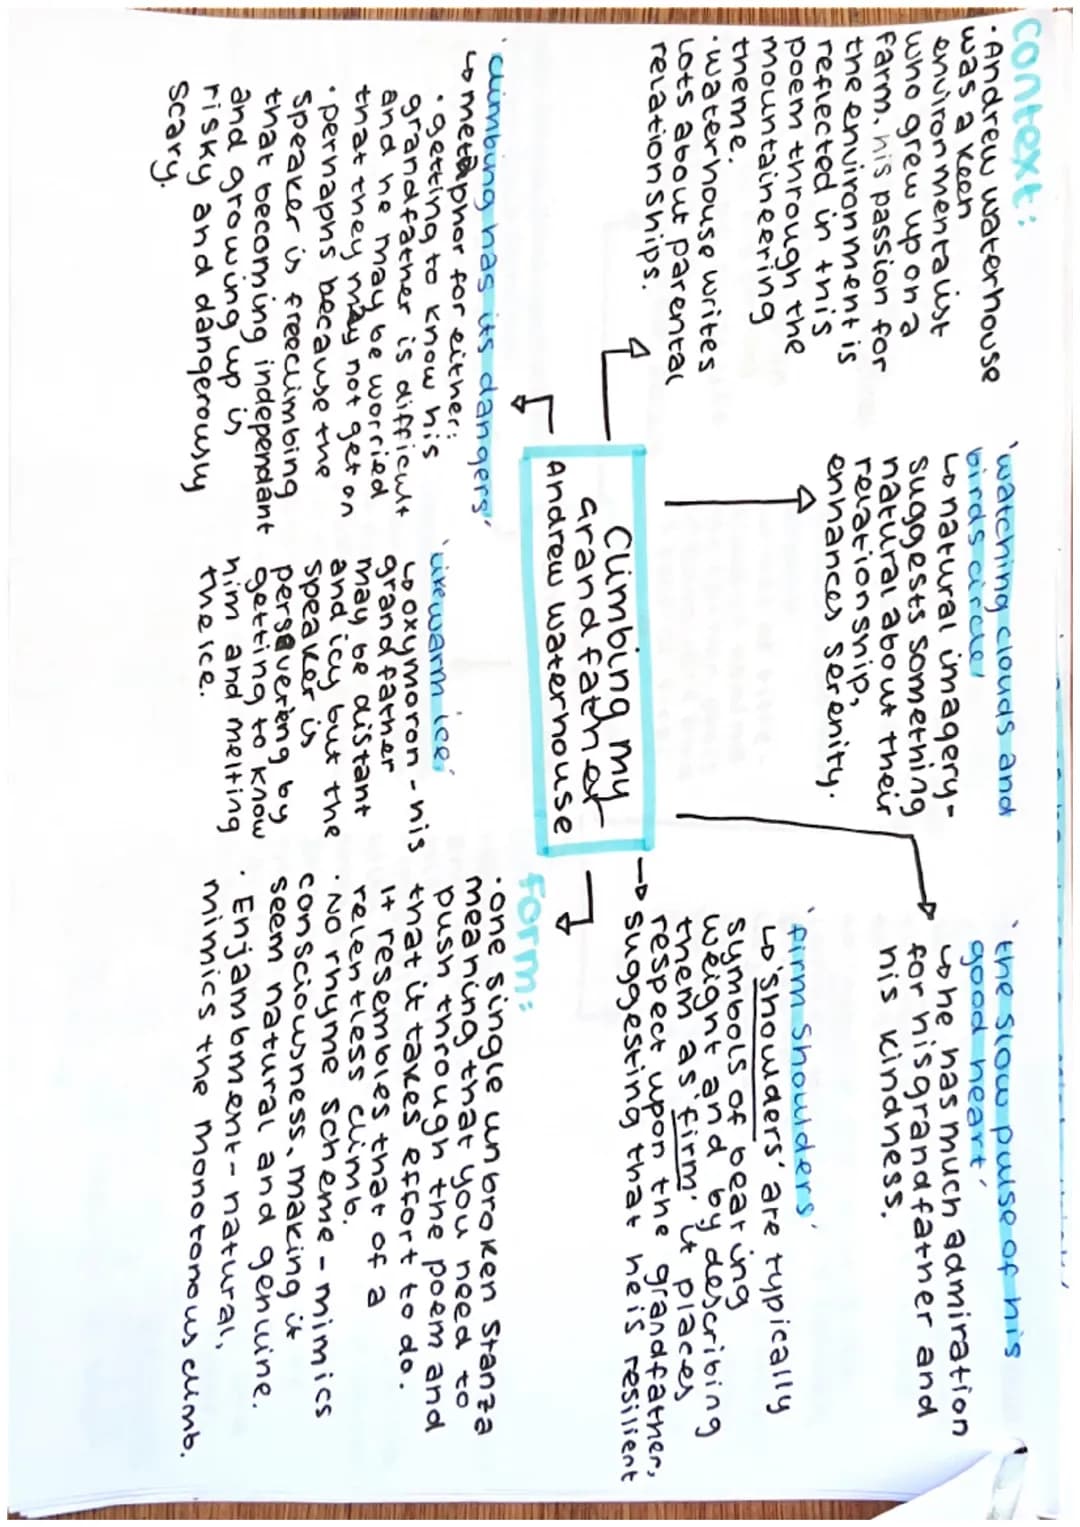 context:
· Andrew waterhouse
was a keen
environmentalist
who grew up on a
farm. his passion for
the environment is
reflected in this
poem through the
mountaineering
theme.
· waterhouse writes
lots about parental
relationships.
'watching clouds and
birds circle'
↳ natural imagery -
suggests something
natural about their
relationship,
enhances serenity.
'the slow pulse of his
good heart'
↳ he has much admiration
for his grandfather and
his kindness.
'firm shoulders'
↳ 'shoulders' are typically
symbols of bearing
weight and by describing
them as 'firm' it places
respect upon the grandfather,
→ suggesting that he is resilient
Climbing my
grandfather
Andrew waterhouse
'climbing has its dangers'
↳ metaphor for either:
· getting to know his
grandfather is difficult
and he may be worried
that they may not get on
· perhaphs because the
speaker is freeclimbing
that becoming independant
and growing up is
risky and dangerously
scary.
'like warm ice'
↳ oxymoron - his
grandfather
may be distant
and icy but the
speaker is
persevering by
getting to know
him and melting
the ice.
form:
· one single unbroken stanza
meaning that you need to
push through the poem and
that it takes effort to do.
It resembles that of a
relentless climb.
· No rhyme scheme - mimics
consciousness, making it
seem natural and genuine.
· Enjambment - natural,
mimics the monotonous climb.